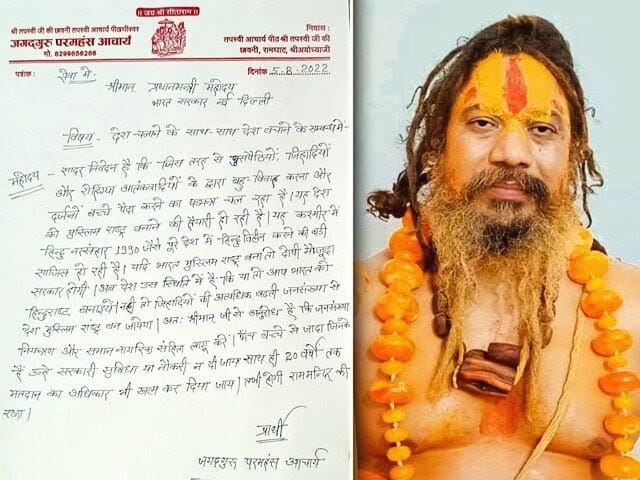 ॥ जय श्री सीताराम ॥
श्री तपस्वी जी की छावनी तपस्वी आचार्य पीठाधीश्वर
जगदगुरु परमहंस आचार्य
मो. 8299658286
निवास :
तपस्वी आचार्य पीठ श्री तपस्वी जी की
छावनी, रामघाट, श्रीअयोध्याजी
पत्रांक :
दिनांक 5-8-2022
सेवा में -
श्रीमान् प्रधानमन्त्री महोदय
भारत सरकार नई दिल्ली
विषय - देश चलाने के साथ-साथ देश बचाने के सम्बन्ध में-
महोदय - सादर निवेदन है कि जिस तरह से घुसपैठियों, जिहादियों
और रोहिंग्या आतंकवादियों के द्वारा बहु-विवाह करना और
दर्जनों बच्चे पैदा करने का षडयन्त्र चल रहा है। यह देश
को मुस्लिम राष्ट्र बनाने की तैयारी हो रही है। यह कश्मीर में
हिन्दू नरसंहार 1990 जैसे पूरे देश में हिन्दू विहीन करने की बडी
साजिश हो रही है। यदि भारत मुस्लिम राष्ट्र बना तो दोषी मौजूदा
सरकार होगी। अब देश उस स्थिति में है कि या तो आप भारत को
हिन्दूराष्ट्र बनाइये। नहीं तो जिहादियों की अत्यधिक बढती जनसंख्या से
देश मुस्लिम राष्ट्र बन जायेगा। अतः श्रीमान् जी से अनुरोध है कि जनसंख्या
नियन्त्रण और समान नागरिक संहिता लागू करें। पाँच बच्चे से जादा जिनके
हैं उन्हें सरकारी सुविधा या नौकरी न दी जाय साथ ही 20 वर्षों तक
मतदान का अधिकार भी खत्म कर दिया जाय। तभी होगी राममन्दिर की
रक्षा।
प्रार्थी
जगदगुरु परमहंस आचार्य